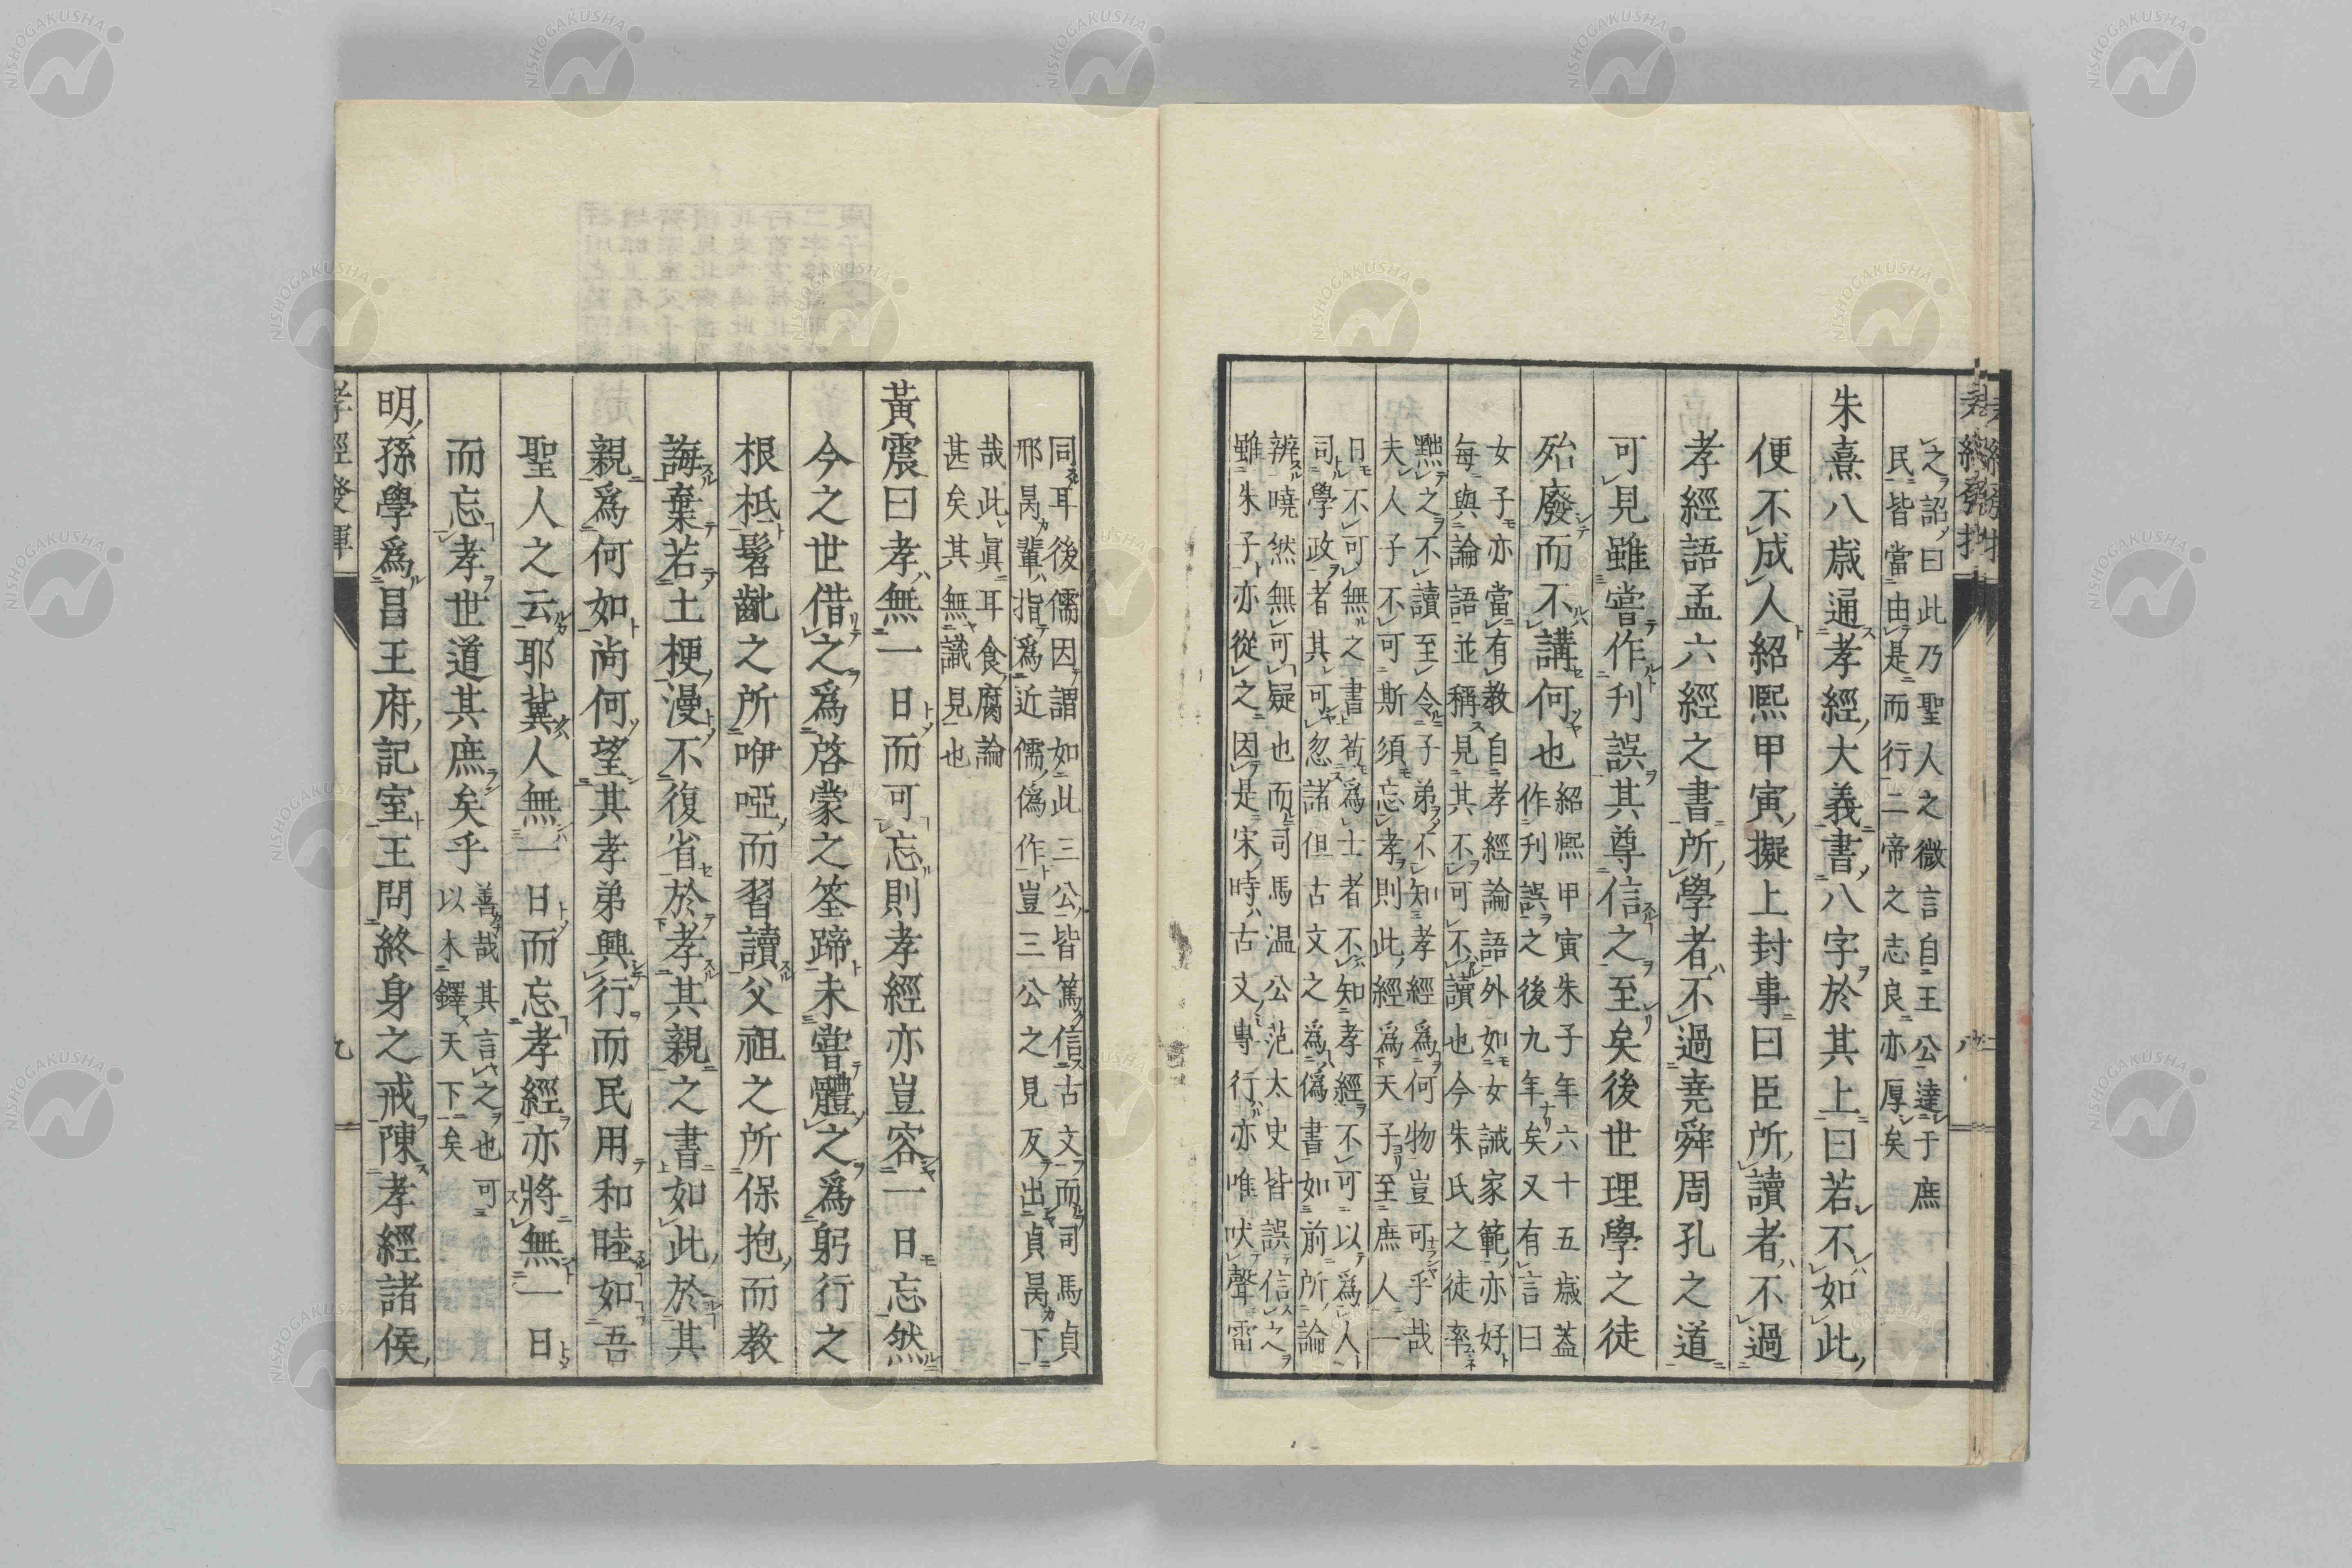 之詔曰此乃聖人之微言自王公達于庶
民皆當由是而行二帝之志良亦厚矣
朱熹八歲通孝經大義書八字於其上曰若不如此
便不成人紹熙甲寅擬上封事曰臣所讀者不過
孝經語孟六經之書所學者不過堯舜周孔之道
可見雖嘗作刋誤其尊信之至矣後世理學之徒
殆廢而不講何也
紹熙甲寅朱子年六十五歲蓋
作刋誤之後九年矣又有言曰
女子亦當有教自孝經論語外如女誡家範亦好
每與論語並稱見其不可不讀也今朱氏之徒率
黜之不讀至令子弟不知孝經爲何物豈可乎哉
夫人子不可斯須忘孝則此經爲天子至庶人一
日不可無之書苟爲士者不知孝經不可以爲人
司學政者其可忽諸但古文之爲僞書如前所論
辨曉然無可疑也而司馬温公范太史皆誤信之
雖朱子亦從之因是宋時古文專行亦唯吠聲雷
同耳後儒因謂如此三公皆篤信古文而司馬貞
邢昺輩指爲近儒僞作豈三公之見反出貞昺下
哉此眞耳食腐論
甚矣其無識見也
黃震曰孝無一日而可忘則孝經亦豈容一日忘然
今之世借之爲啓蒙之筌蹄未嘗體之爲躬行之
根柢髫齔之所咿啞而習讀父祖之所保抱而教
誨棄若土梗漫不復省於孝其親之書如此於其
親爲何如尚何望其孝弟興行而民用和睦如吾
聖人之云耶冀人無一日而忘孝經亦將無一日
而忘孝世道其庶矣乎
善哉其言之也可
以木鐸天下矣
明孫學爲昌王府記室王問終身之戒陳孝經諸侯
孝經發揮
九